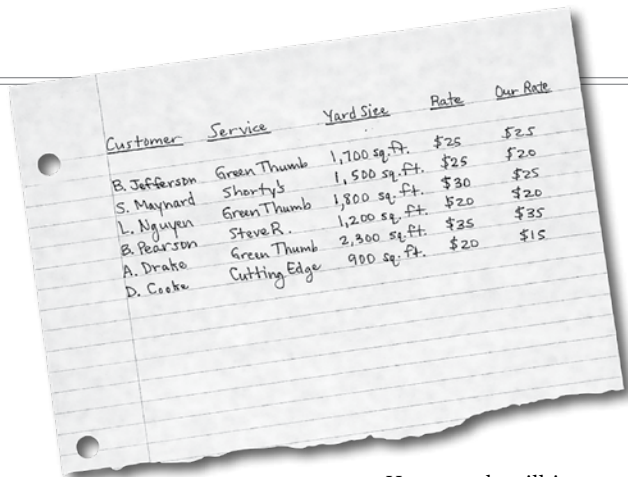 Customer Service Yard Size Rate Our Rate
B. Jefferson Green Thumb 1,700 sq. ft. $25 $25
S. Maynard Shorty's 1,500 sq. ft. $25 $20
L. Nguyen Green Thumb 1,800 sq. ft. $30 $25
B. Pearson Steve R. 1,200 sq. ft. $20 $20
A. Drake Green Thumb 2,300 sq. ft. $35 $35
D. Cooke Cutting Edge 900 sq. ft. $20 $15